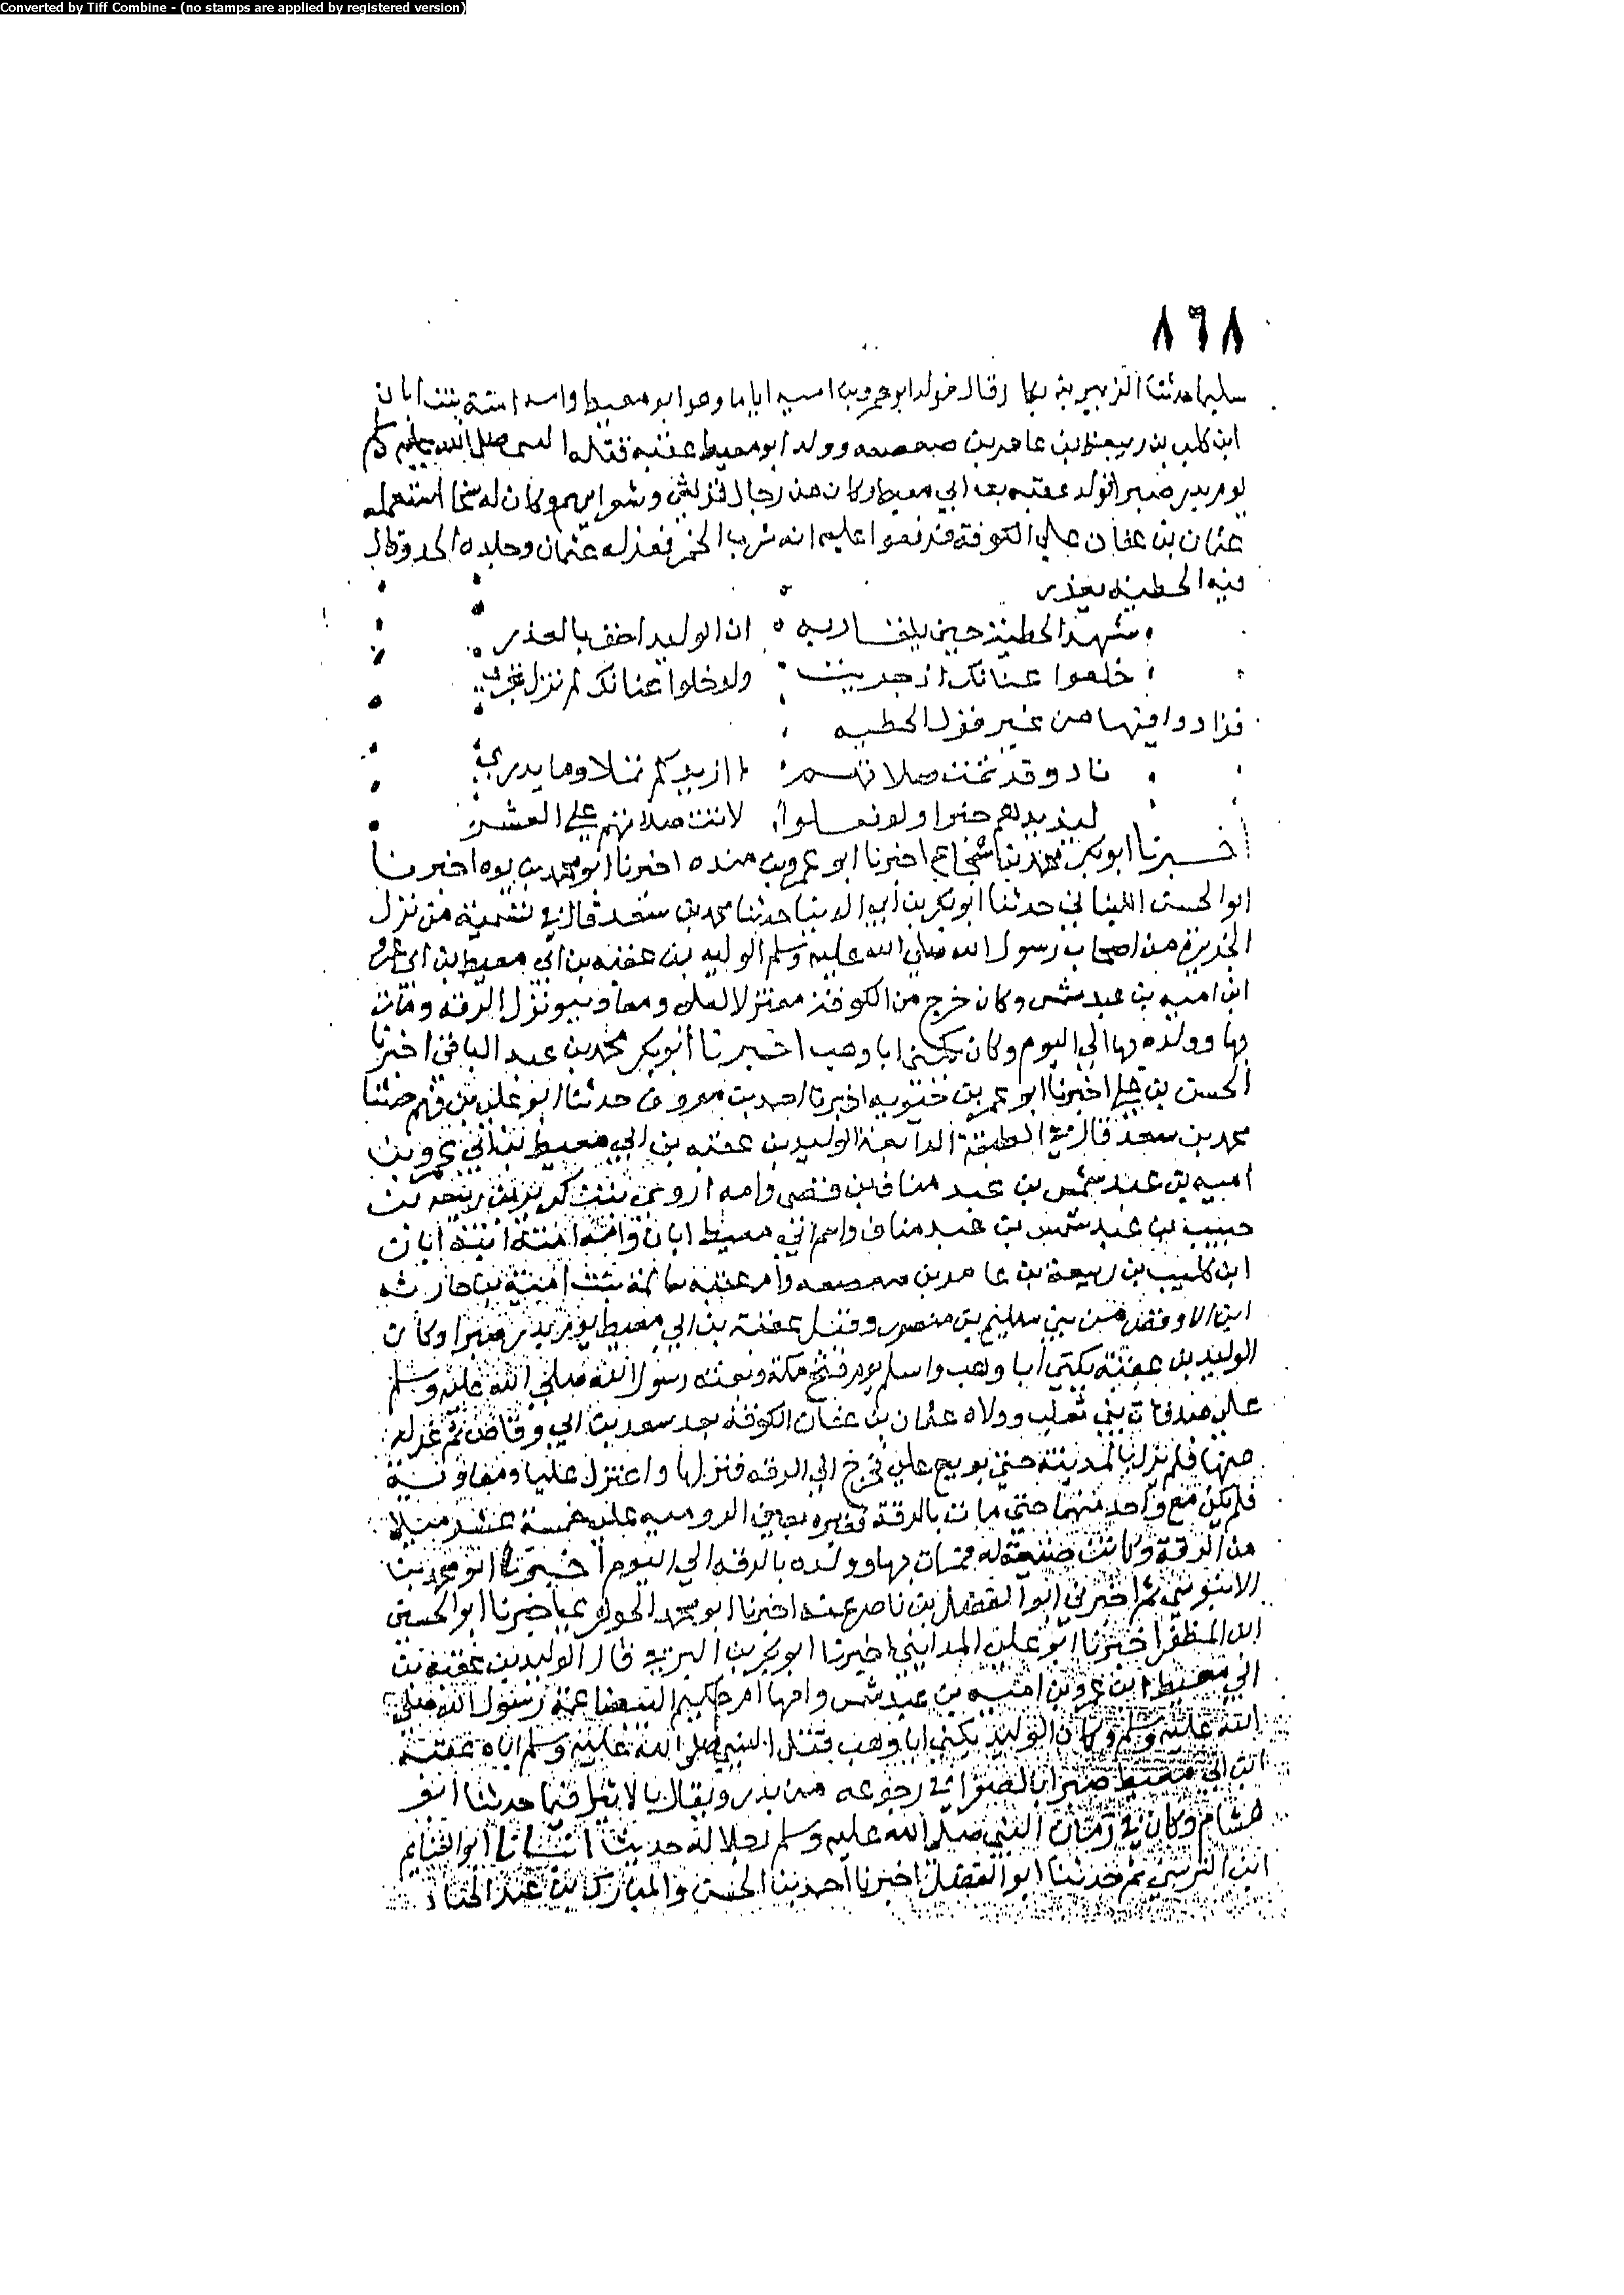 Converted by Tiff Combine - (no stamps are applied by registered version)
٨٦٨
سليما حدثنا الزبير بن بكار قال فولد ابو عمرو بن امية ابانا وهو ابو معيط وامه امنة بنت ابان
ابن كليب بن ربيعة بن عامر بن صعصعه وولد ابو معيط عقبه قتله النبي صلى الله عليه وسلم
يوم بدر صبرا فولد عقبه بن ابي معيط وكان من رجال قريش وشعرايهم وكان له سخا استعمله
عثمان بن عفان علي الكوفة فرفعوا عليه انه شرب الخمر فعزله عثمان وجلده الحد وقال
فيه الحطيئه يعذر
شهد الحطيئة حين يلقا ربه ان الوليد احق بالعذر
خلعوا عنانك اذ جريت ولو خلوا عنانك لم تزل تجري
فزادوا فيها من غير قول الحطيه
نادو وقد تمت صلاتهم اازيدكم ثملا وما يدري
ليزيدهم خيرا ولو فعلوا لاتت صلاتهم علي العشر
اخبرنا ابو بكر محمد بن شجاع اخبرنا ابو عمرو بن منده اخبرنا ابو محمد بن يوه اخبرنا
ابو الحسن اللبناني حدثنا ابو بكر بن ابي الدنيا حدثنا محمد بن سعد قال في تسمية من نزل
الجزيرة من اصحاب رسول الله صلي الله عليه وسلم الوليد بن عقبه بن ابي معيط بن ابي عمرو
ابن اميه بن عبد شمس وكان خرج من الكوفة معتزلا لعلي ومعاويه ونزل الرقه ومات
بها وولده بها الي اليوم وكان يكنى ابا وهب اخبرنا ابو بكر محمد بن عبد الباقي اخبرنا
الحسن بن علي اخبرنا ابو عمر بن حيويه اخبرنا احمد بن معروف حدثنا ابو علي بن فهم حدثنا
محمد بن سعد قال في الطبقة الرابعة الوليد بن عقبه بن ابي معيط بن ابي عمرو بن
اميه بن عبد شمس بن عبد مناف بن قصي وامه اروى بنت كريز بن ربيعه بن
حبيب بن عبد شمس بن عبد مناف واسم ابي معيط ابان وامه امنة ابنة ابان
ابن كليب بن ربيعة بن عامر بن صعصعه وام عقبه سالمة بنت امية بن حارثه
ابن الاوقص من بني سليم بن منصور وقتل عقبة بن ابي معيط يوم بدر صبرا وكان
الوليد بن عقبة يكنى ابا وهب واسلم يوم فتح مكة وبعثه رسول الله صلي الله عليه وسلم
علي صدقات بني ثعلب وولاه عثمان بن عفان الكوفه بعد سعد بن ابي وقاص ثم عزله
عنها فلم نزل بالمدينة حتى بويع علي فخرج الي الرقه فنزلها واعتزل عليا ومعاوية
فلم يكن مع واحد منهما حتى مات بالرقة فقبره بعين الروميه علي خمسة عشر ميلا
من الرقة وكانت ضيعة له فمات بها وولده بالرقه الي اليوم اخبرنا ابو محمد بن
الابنوسي ثم اخبرني ابو الفضل بن ناصر عنه اخبرنا ابو محمد الجوهري اخبرنا ابو الحسين
ابن المظفر اخبرنا ابو علي المدايني اخبرنا ابو بكر بن البرقي قال الوليد بن عقبه بن
ابي معيط ابن عمرو بن امية بن عبد شمس وامها ام حكيم البيضا عمة رسول الله صلي
الله عليه وسلم وكان الوليد يكنى ابا وهب قتل النبي صلى الله عليه وسلم اباه عقبه
ابن ابي معيط صبرا بالصفرا في رجوعه من بدر ويقال بالاثيل فيما حدثنا ابو
هشام وكان في زمان النبي صلى الله عليه وسلم رجلا له حديث انبانا ابو الغنايم
ابن النرسي ثم حدثنا ابو الفضل اخبرنا احمد بن الحسن والمبارك بن عبد الجبار